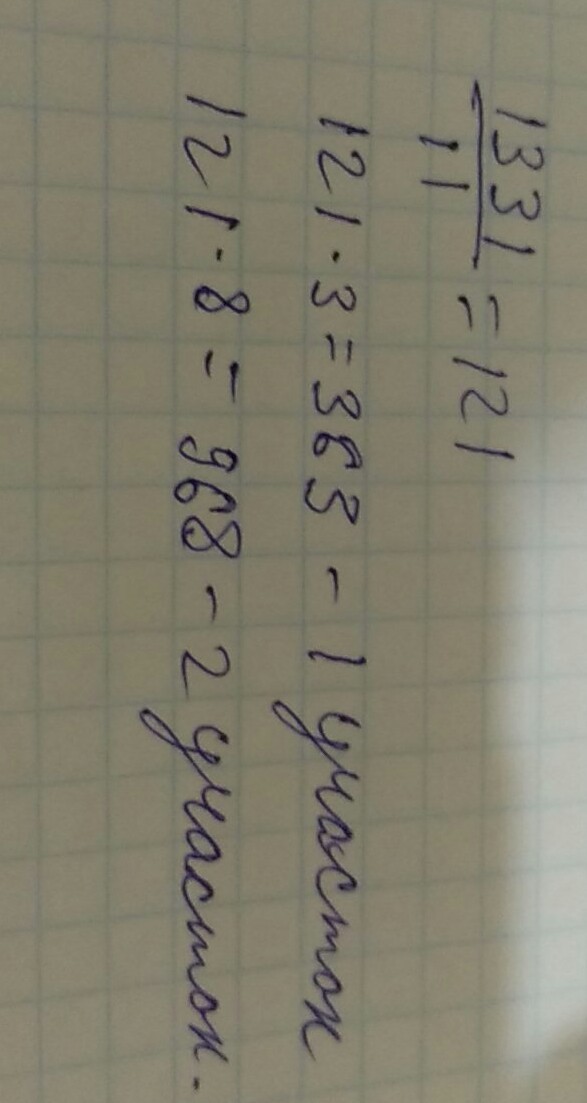 1331/11 = 121
121 · 3 = 363 - 1 участок
121 · 8 = 968 - 2 участок.